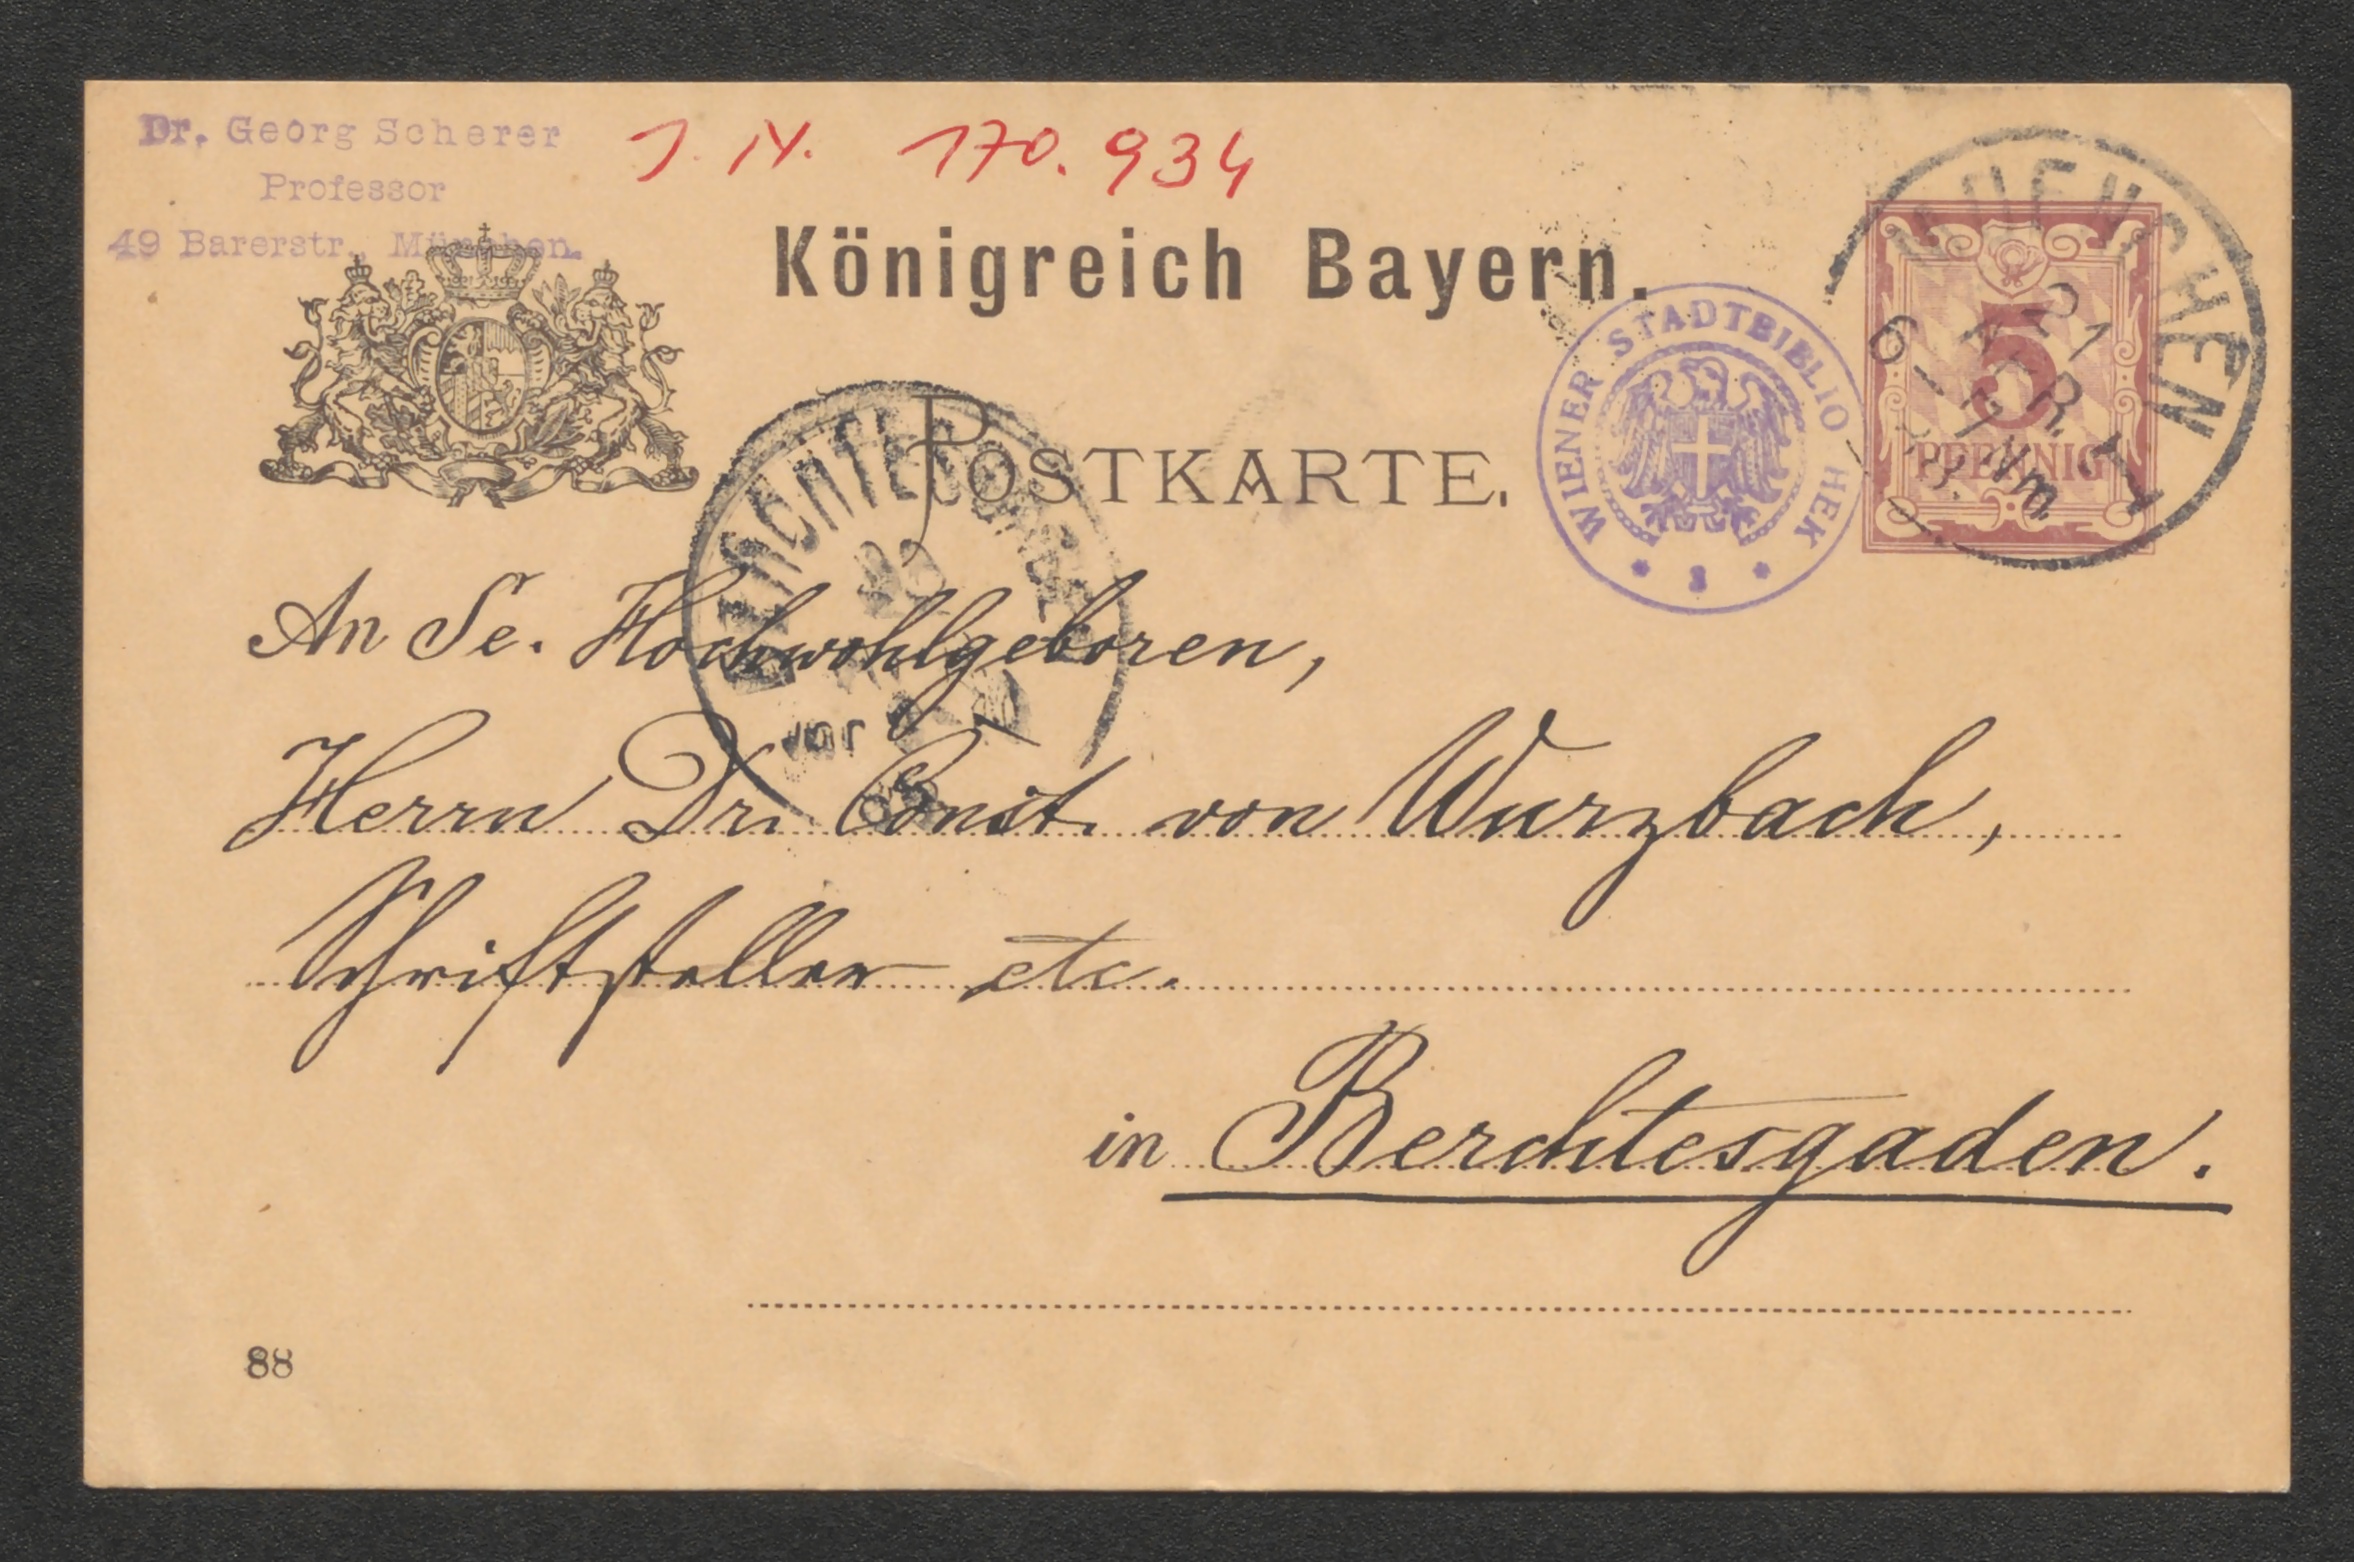 Dr. Georg Scherer
Professor
49 Barerstr., München.
J. N. 170.934
Königreich Bayern.
POSTKARTE.
WIENER STADTBIBLIOTHEK
MUENCHEN I
21
APR.
6-7 Nm.
5
PFENNIG
BERCHTESGADEN
22
An Se. Hochwohlgeboren,
Herrn Dr. Const. von Wurzbach,
Schriftsteller etc.
in Berchtesgaden.
88